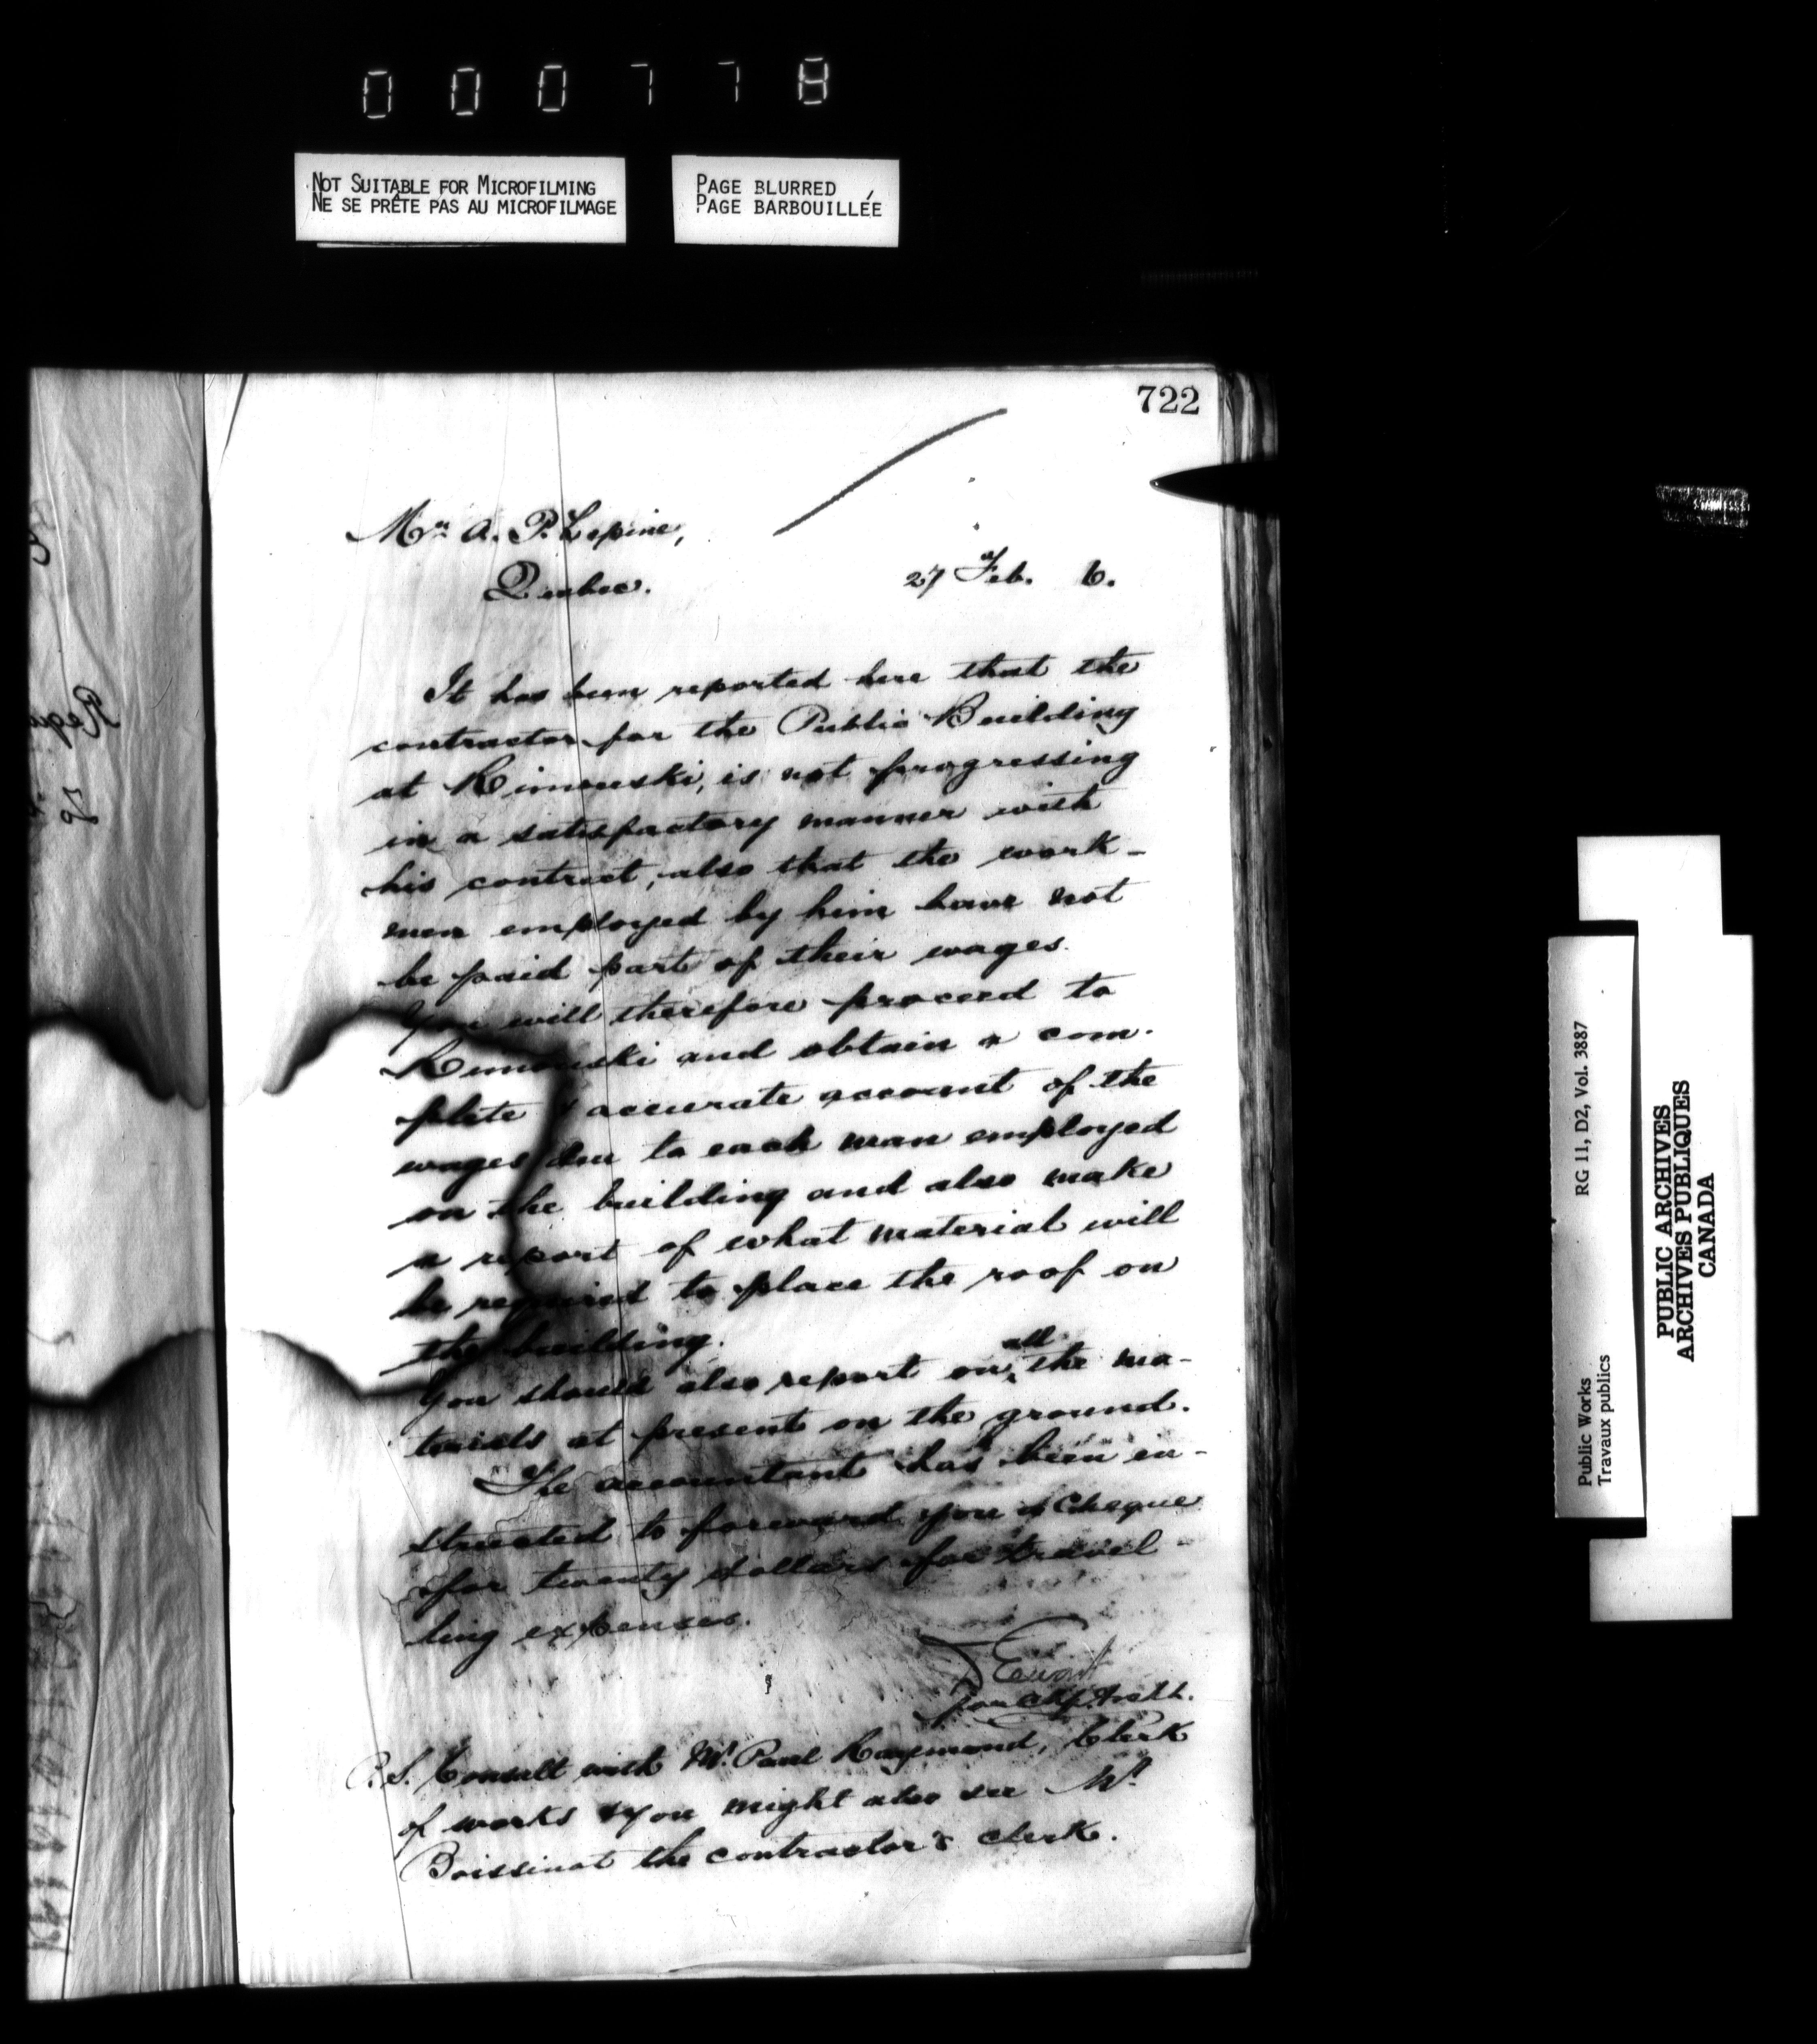 000778
NOT SUITABLE FOR MICROFILMING
NE SE PRÊTE PAS AU MICROFILMAGE
PAGE BLURRED
PAGE BARBOUILLÉE
722
Mr. A. P. Lepine,
Quebec.
27 Feb. 6.
It has been reported here that the
contractor for the Public Building
at Rimouski, is not progressing
in a satisfactory manner with
his contract, also that the work-
men employed by him have not
be paid part of their wages.
You will therefore proceed to
Rimouski and obtain a com-
plete & accurate account of the
wages due to each man employed
on the building and also make
a report of what material will
be required to place the roof on
the building.
You should also report on all the ma-
terials at present on the ground.
The accountant has been in-
structed to forward you a Cheque
for twenty dollars for travel-
ling expenses.
D Ewart
for Chf. Archt.
P.S. Consult with Mr. Paul Raymond, Clerk
of works & you might also see Mr.
Boissinot the contractor's clerk.
Public Works
Travaux publics
RG 11, D2, Vol. 3887
PUBLIC ARCHIVES
ARCHIVES PUBLIQUES
CANADA